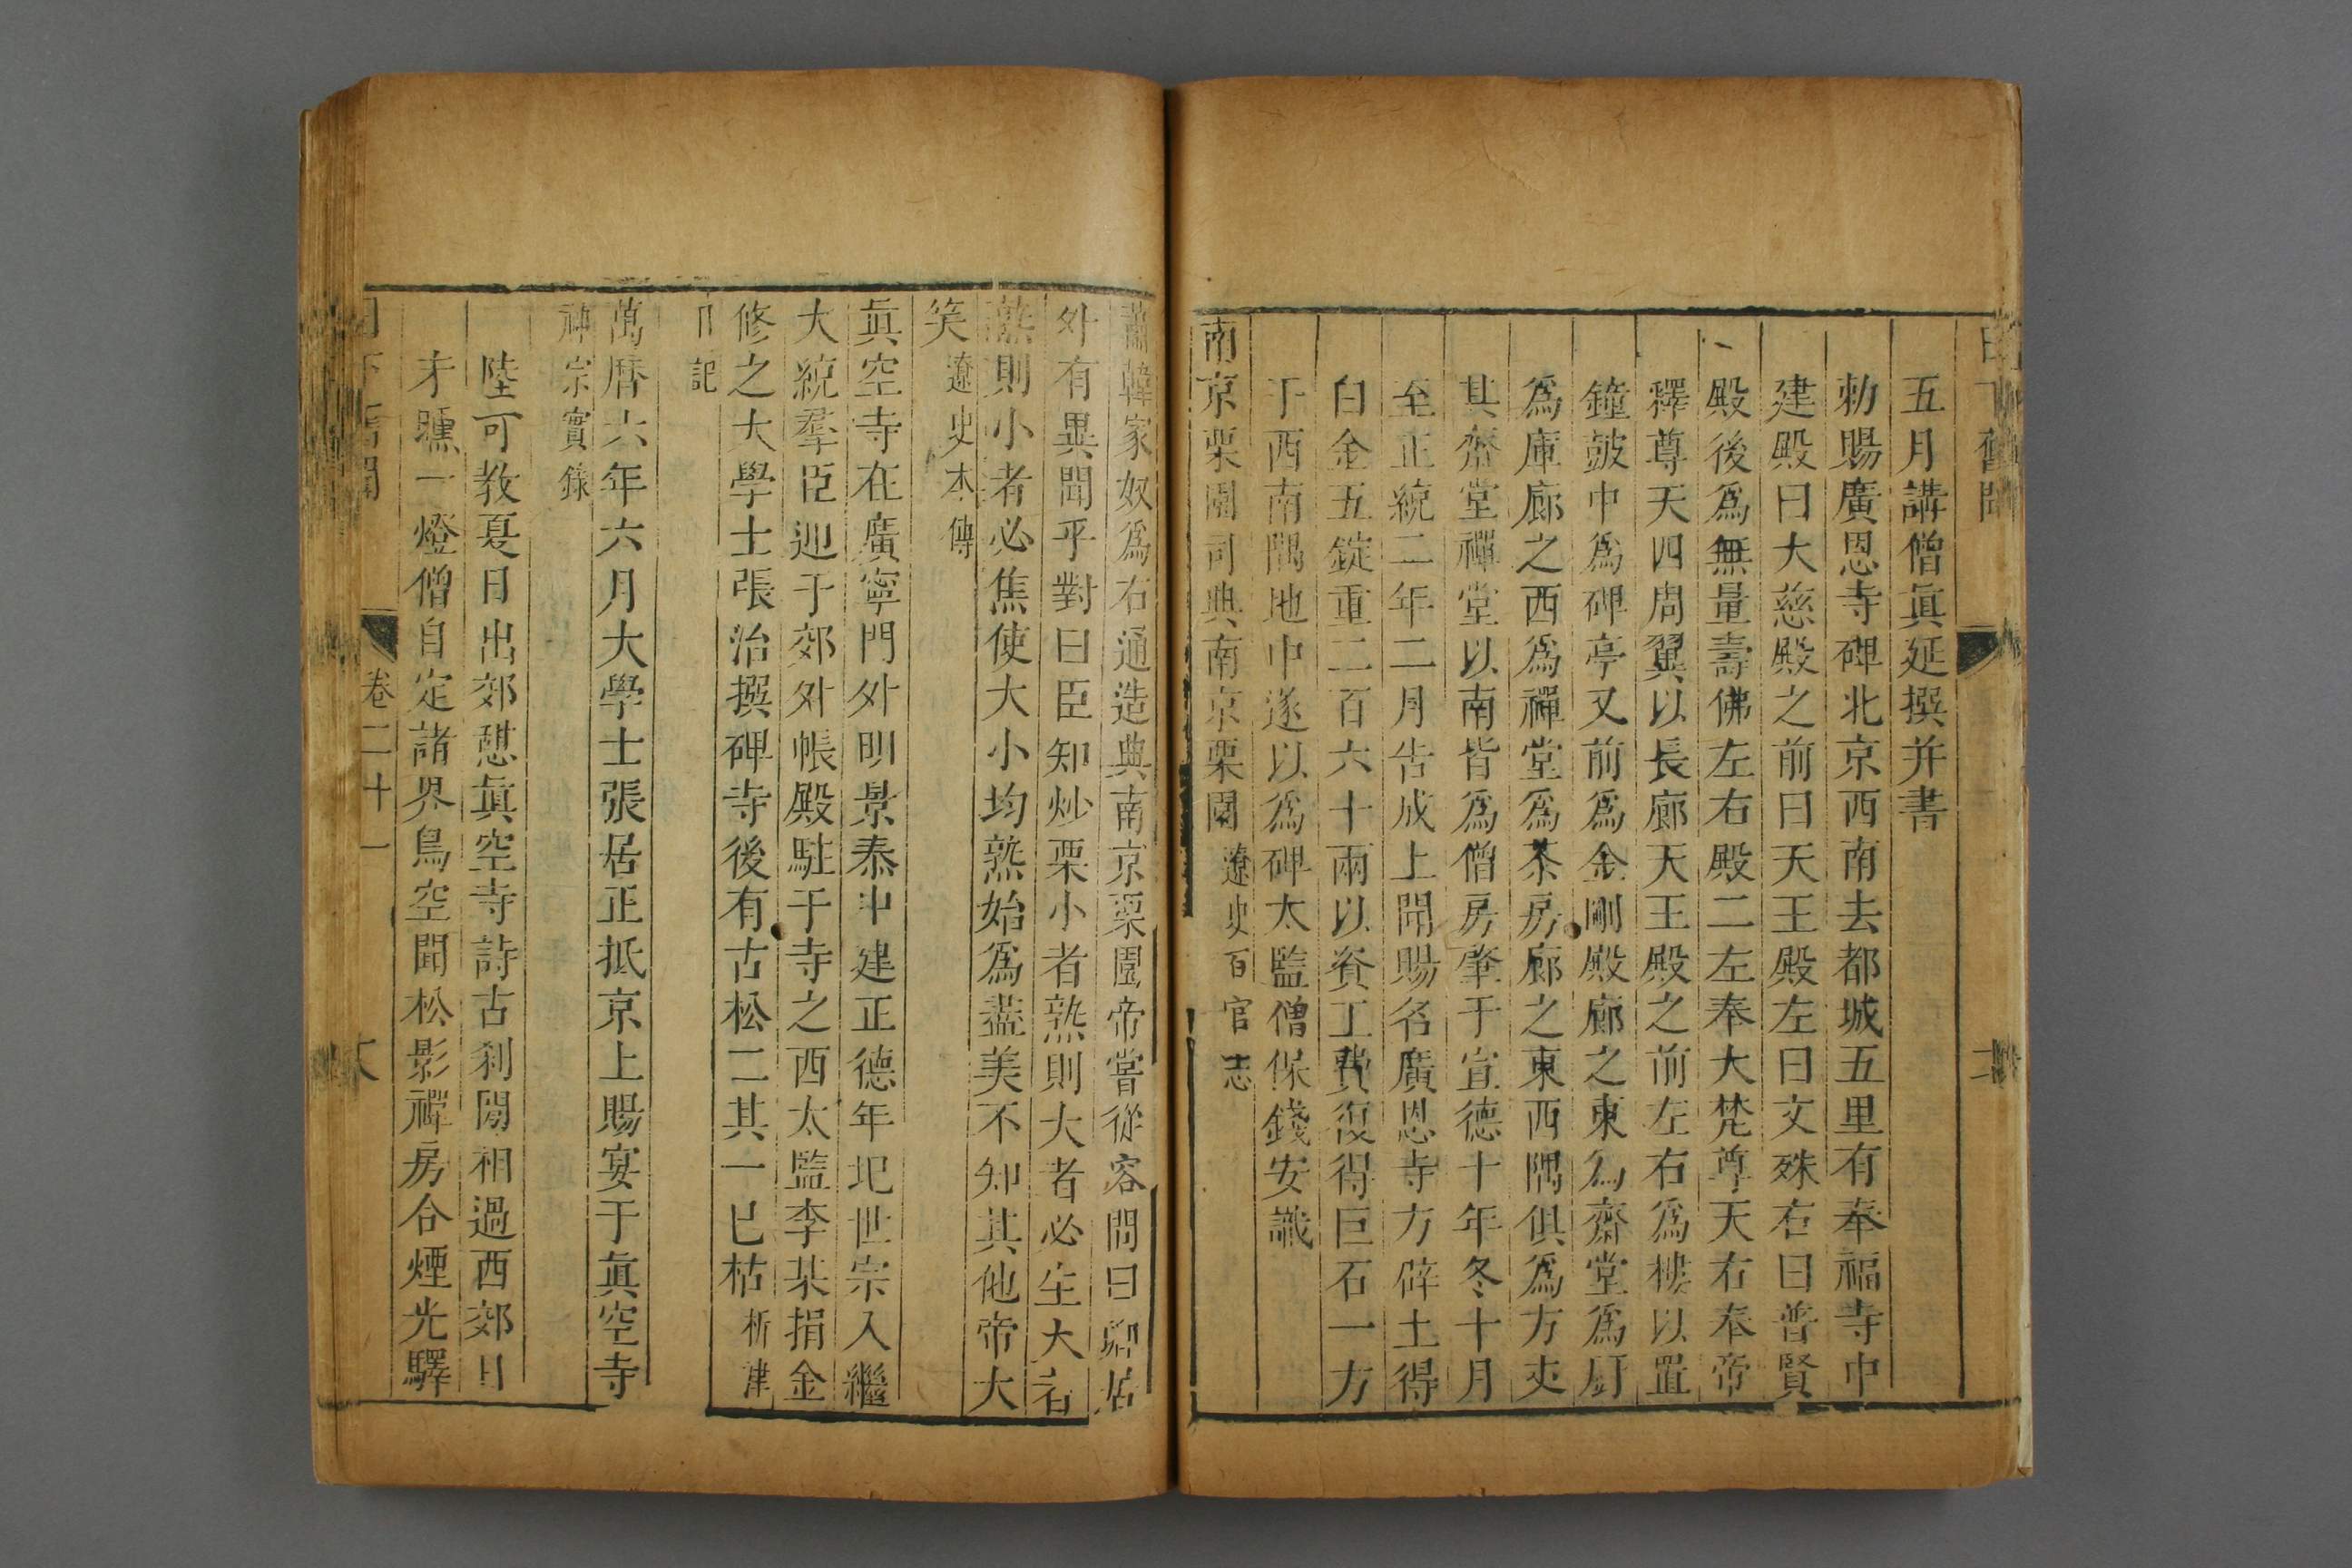 五月講僧眞延撰并書
勅賜廣恩寺碑北京西南去都城五里有奉福寺中
建殿曰大慈殿之前曰天王殿左曰文殊右曰普賢
殿後爲無量壽佛左右殿二左奉大梵尊天右奉帝
釋尊天四周翼以長廊天王殿之前左右爲樓以置
鐘皷中爲碑亭又前爲金剛殿廊之東爲齋堂爲厨
爲庫廊之西爲禪堂爲茶房廊之東西隅俱爲方丈
其齋堂禪堂以南皆爲僧房肇于宣德十年冬十月
至正統二年二月告成上聞賜名廣恩寺方辟土得
白金五錠重二百六十兩以資工費復得巨石一方
于西南隅地中遂以爲碑太監僧保錢安識
南京栗園司典南京栗園 遼史百官志
蕭韓家奴爲右通造典南京栗園帝嘗從容問曰卿居
外有異聞乎對曰臣知炒栗小者熟則大者必生大者
熟則小者必焦使大小均熟始爲盡美不知其他帝大
笑 遼史本傳
眞空寺在廣寧門外明景泰中建正德年圯世宗入繼
大統羣臣迎于郊外帳殿駐于寺之西太監李某捐金
修之大學士張治撰碑寺後有古松二其一已枯 析津
日記
萬曆六年六月大學士張居正抵京上賜宴于眞空寺
神宗實錄
陸可教夏日出郊憇眞空寺詩古刹閒相過西郊日
才曛一燈僧自定諸界鳥空聞松影禪房合煙光驛
日下舊聞 卷二十一